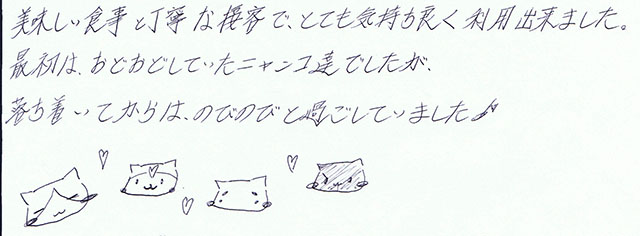 美味しい食事と丁寧な接客で、とても気持ち良く利用出来ました。
最初は、おどおどしていたニャンコ達でしたが、
落ち着いてからは、のびのびと過ごしていました♪